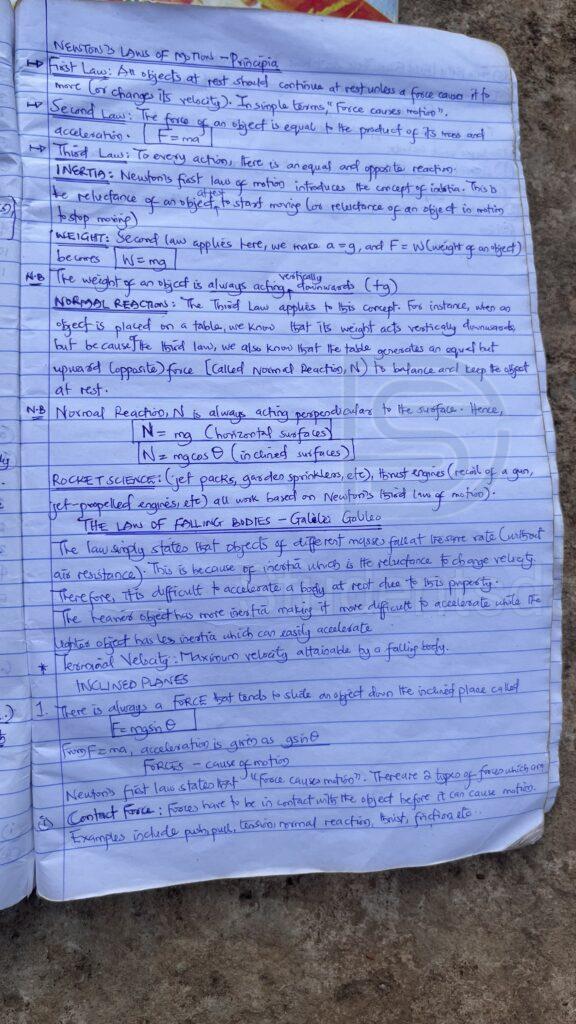 NEWTON'S LAWS OF MOTION - Principia
→ First Law: All objects at rest should continue at rest unless a force causes it to
move (or changes its velocity). In simple terms, "Force causes motion".
→ Second Law: The force of an object is equal to the product of its mass and
acceleration. F = ma
→ Third Law: To every action, there is an equal and opposite reaction.
INERTIA: Newton's first law of motion introduces the concept of inertia. This is
the reluctance of an object at rest to start moving (or reluctance of an object in motion
to stop moving)
WEIGHT: Second law applies here, we make a=g, and F = W (weight of an object)
becomes W = mg
N.B The weight of an object is always acting vertically downwards (+g)
NORMAL REACTION: The Third Law applies to this concept. For instance, when an
object is placed on a table, we know that its weight acts vertically downwards
but because of the third law, we also know that the table generates an equal but
upward (opposite) force [called Normal Reaction, N) to balance and keep the object
at rest.
N.B Normal Reaction, N is always acting perpendicular to the surface. Hence,
N = mg (horizontal surfaces)
N = mgcosθ (inclined surfaces)
ROCKET SCIENCE: (jet packs, garden sprinklers, etc), thrust engines (recoil of a gun,
jet-propelled engines, etc) all work based on Newton's third law of motion).
THE LAW OF FALLING BODIES - Galileo Galilei
The law simply states that objects of different masses fall at the same rate (without
air resistance). This is because of inertia which is the reluctance to change velocity.
Therefore, it is difficult to accelerate a body at rest due to this property.
The heavier object has more inertia making it more difficult to accelerate while the
lighter object has less inertia which can easily accelerate
* Terminal Velocity: Maximum velocity attainable by a falling body.
INCLINED PLANES
1. There is always a FORCE that tends to slide an object down the inclined plane called
F = mgsinθ
From F = ma, acceleration is given as gsinθ
FORCES - cause of motion
Newton's first law states that "Force causes motion". There are 2 types of forces which are
(i) Contact Force: Forces have to be in contact with the object before it can cause motion.
Examples include push, pull, tension, normal reaction, thrust, friction etc..